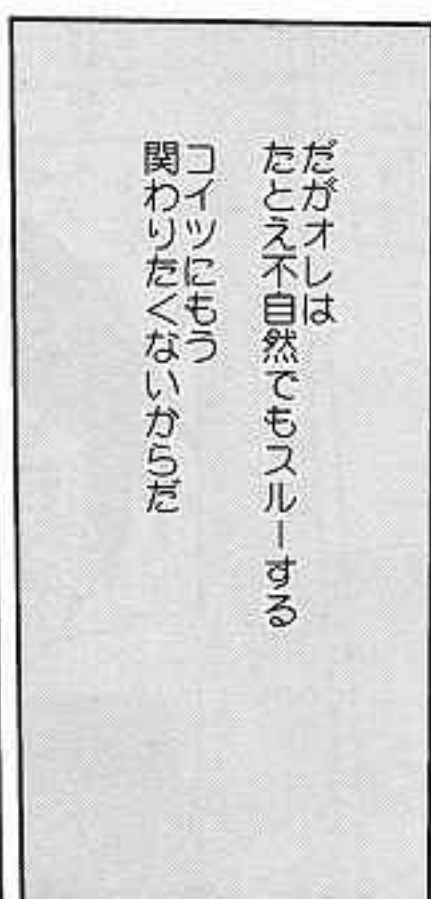 だがオレは
たとえ不自然でもスルーする
コイツにもう
関わりたくないからだ